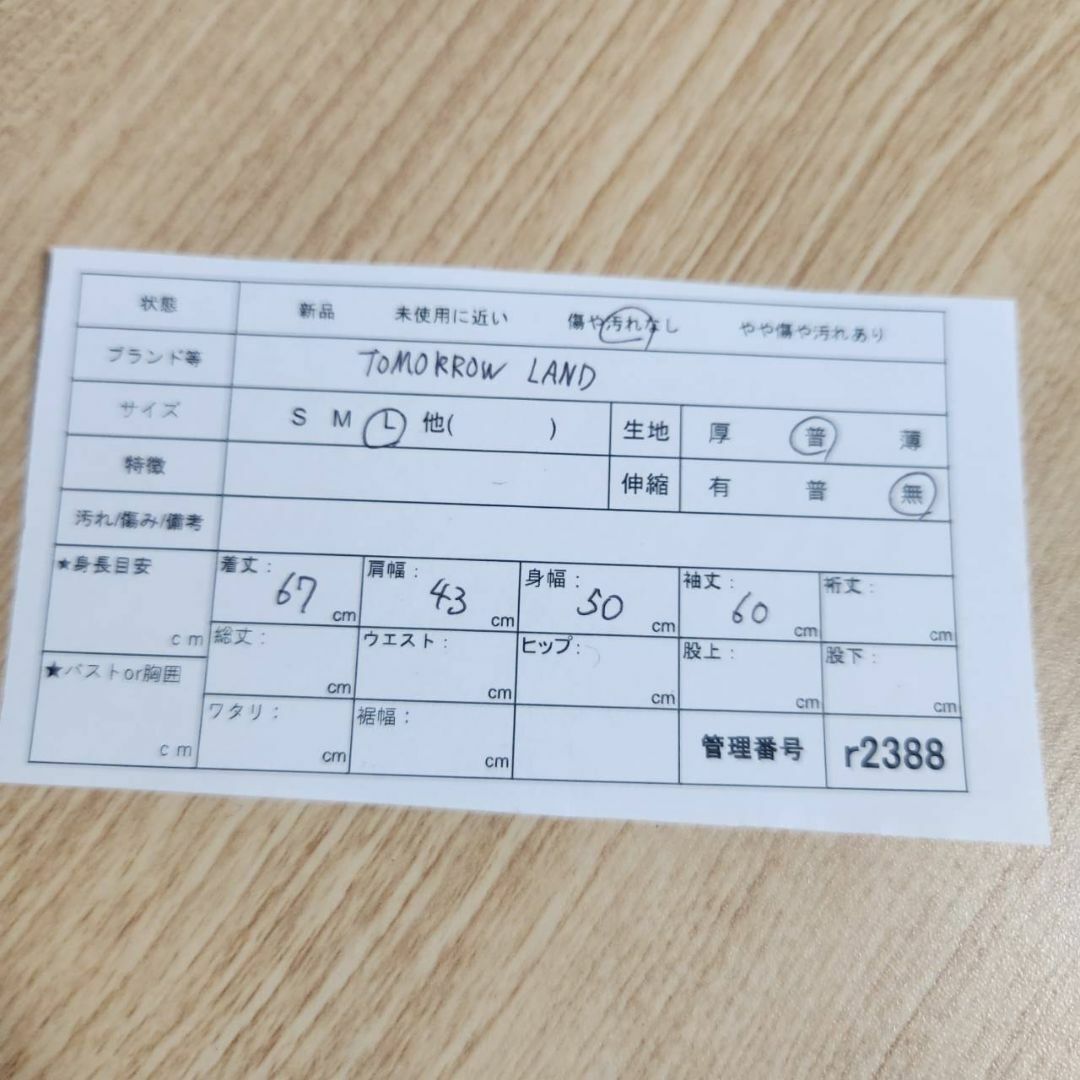 状態 新品 未使用に近い 傷や汚れなし やや傷や汚れあり
ブランド等 TOMORROW LAND
サイズ S M L 他( ) 生地 厚 普 薄
特徴 伸縮 有 普 無
汚れ/傷み/備考
★身長目安 cm 着丈: 67 cm 肩幅: 43 cm 身幅: 50 cm 袖丈: 60 cm 裄丈: cm
総丈: cm ウエスト: cm ヒップ: cm 股上: cm 股下: cm
★バストor胸囲 cm ワタリ: cm 裾幅: cm 管理番号 r2388